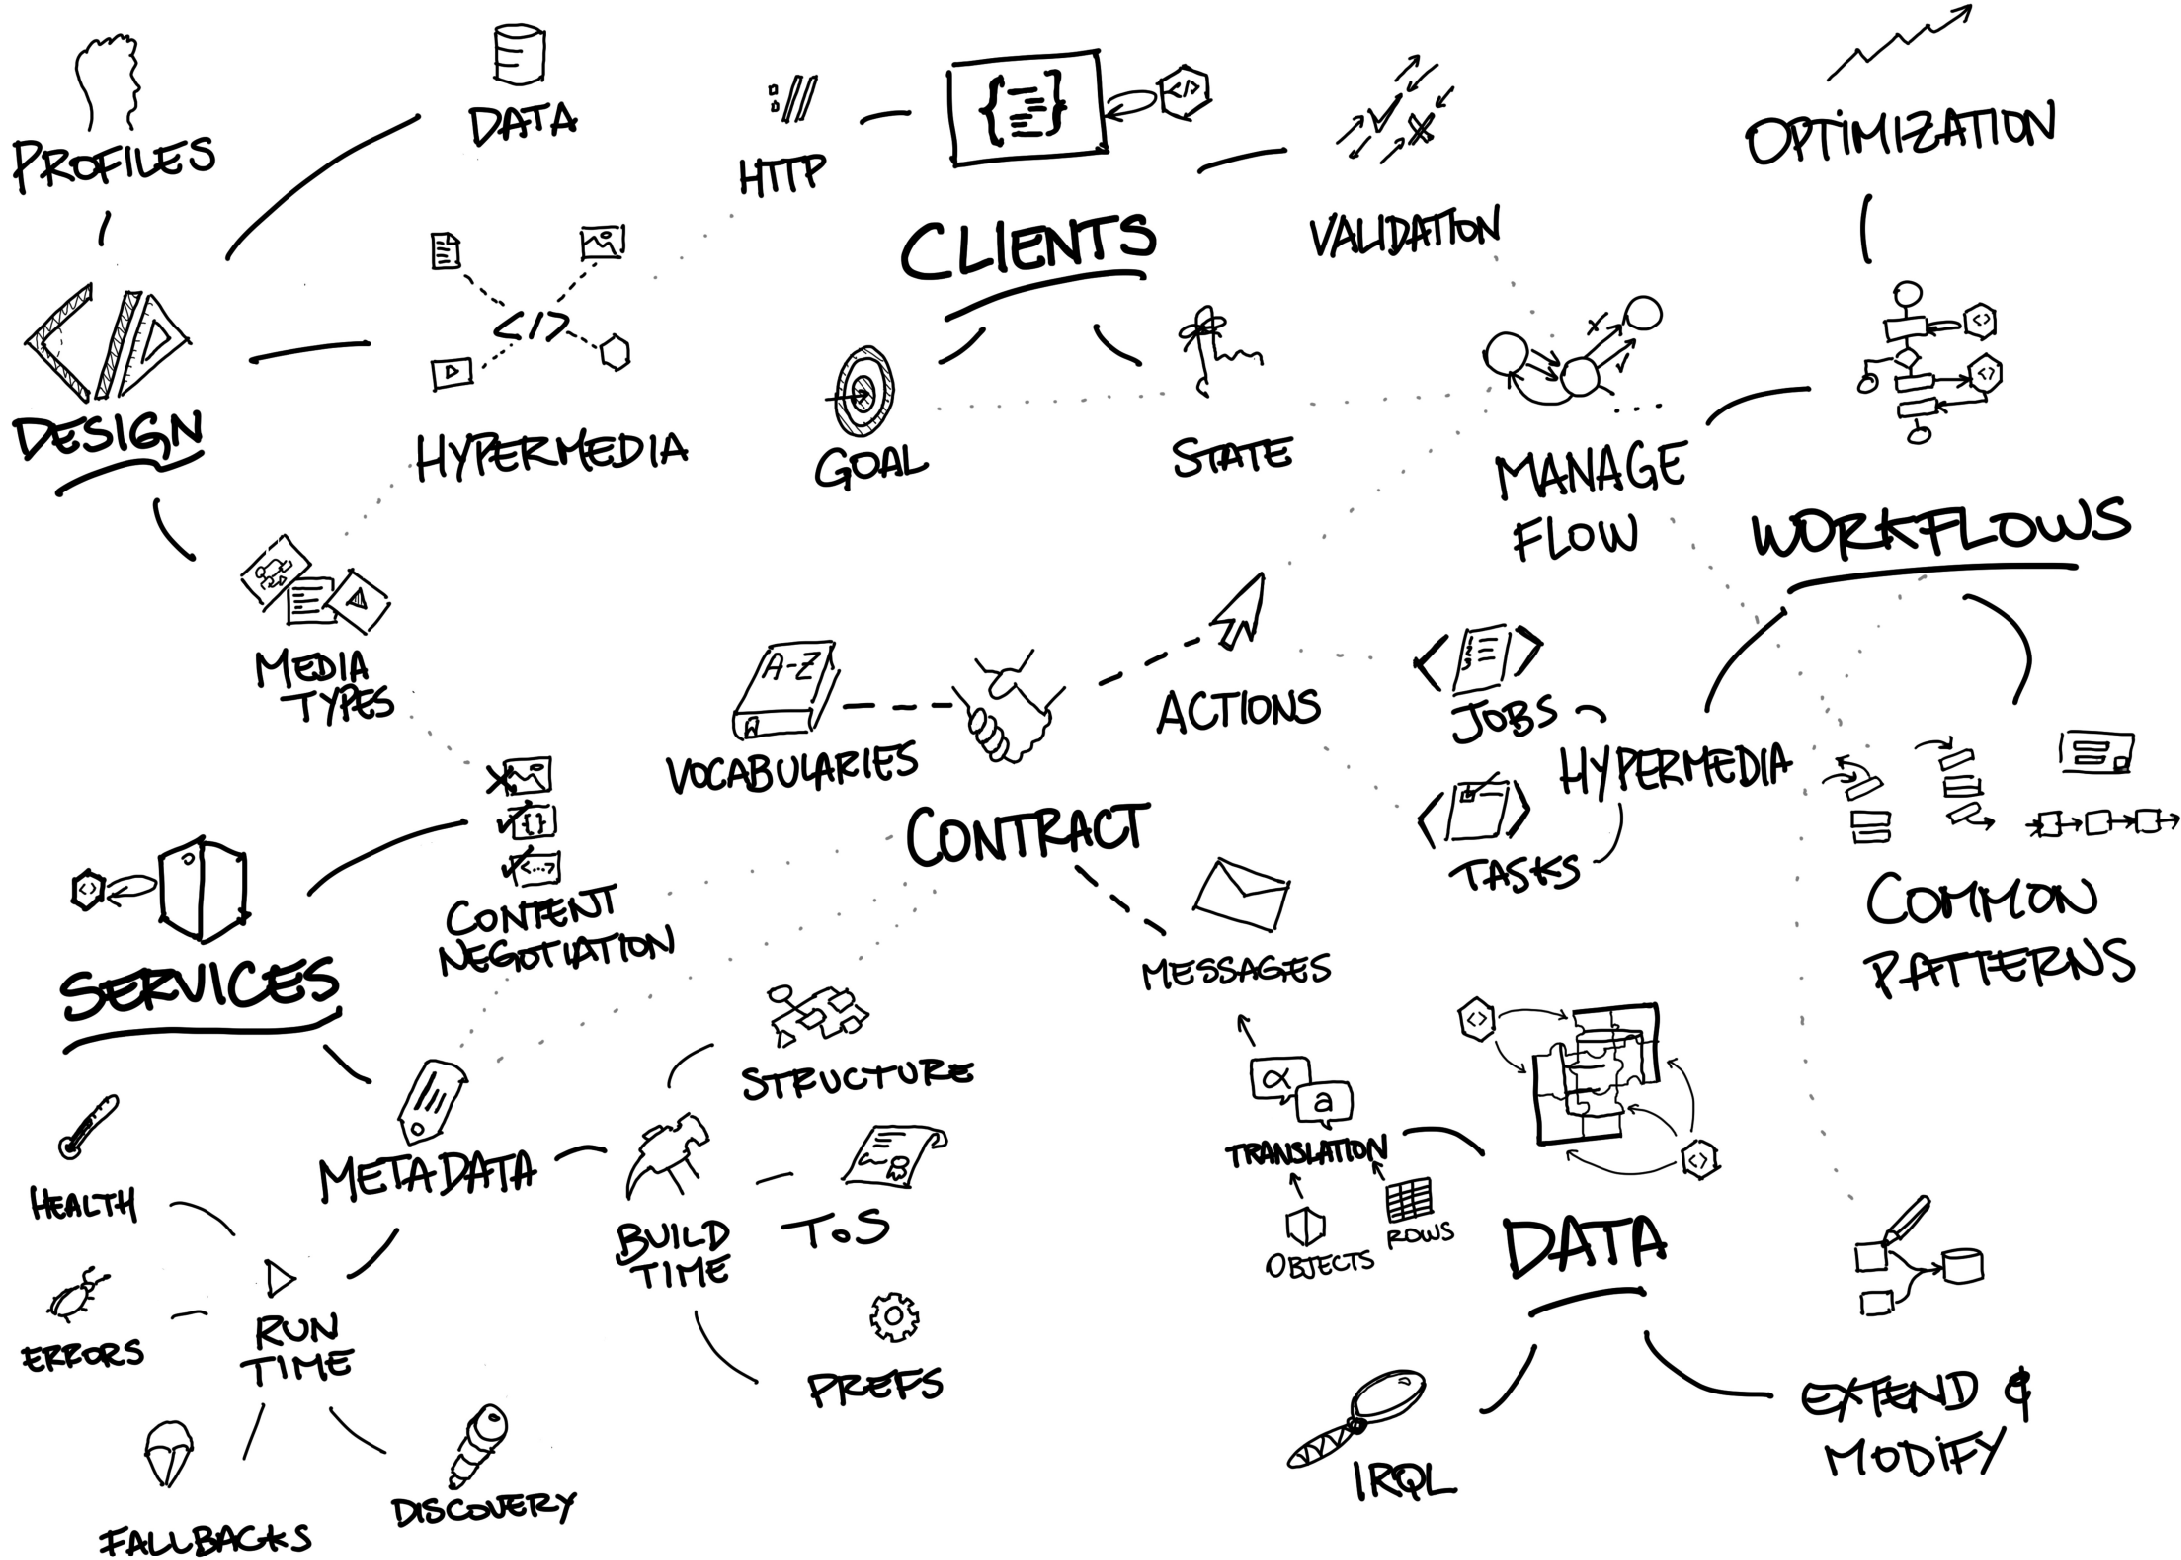 PROFILES
DATA
HTTP
CLIENTS
VALIDATION
OPTIMIZATION
DESIGN
HYPERMEDIA
GOAL
STATE
MANAGE
FLOW
WORKFLOWS
MEDIA
TYPES
A-Z
VOCABULARIES
CONTRACT
ACTIONS
JOBS
HYPERMEDIA
TASKS
COMMON
PATTERNS
MESSAGES
SERVICES
CONTENT
NEGOTIATION
METADATA
STRUCTURE
BUILD
TIME
ToS
PREFS
HEALTH
ERRORS
RUN
TIME
FALLBACKS
DISCOVERY
α
a
TRANSLATION
OBJECTS
ROWS
DATA
IRQL
EXTEND &
MODIFY